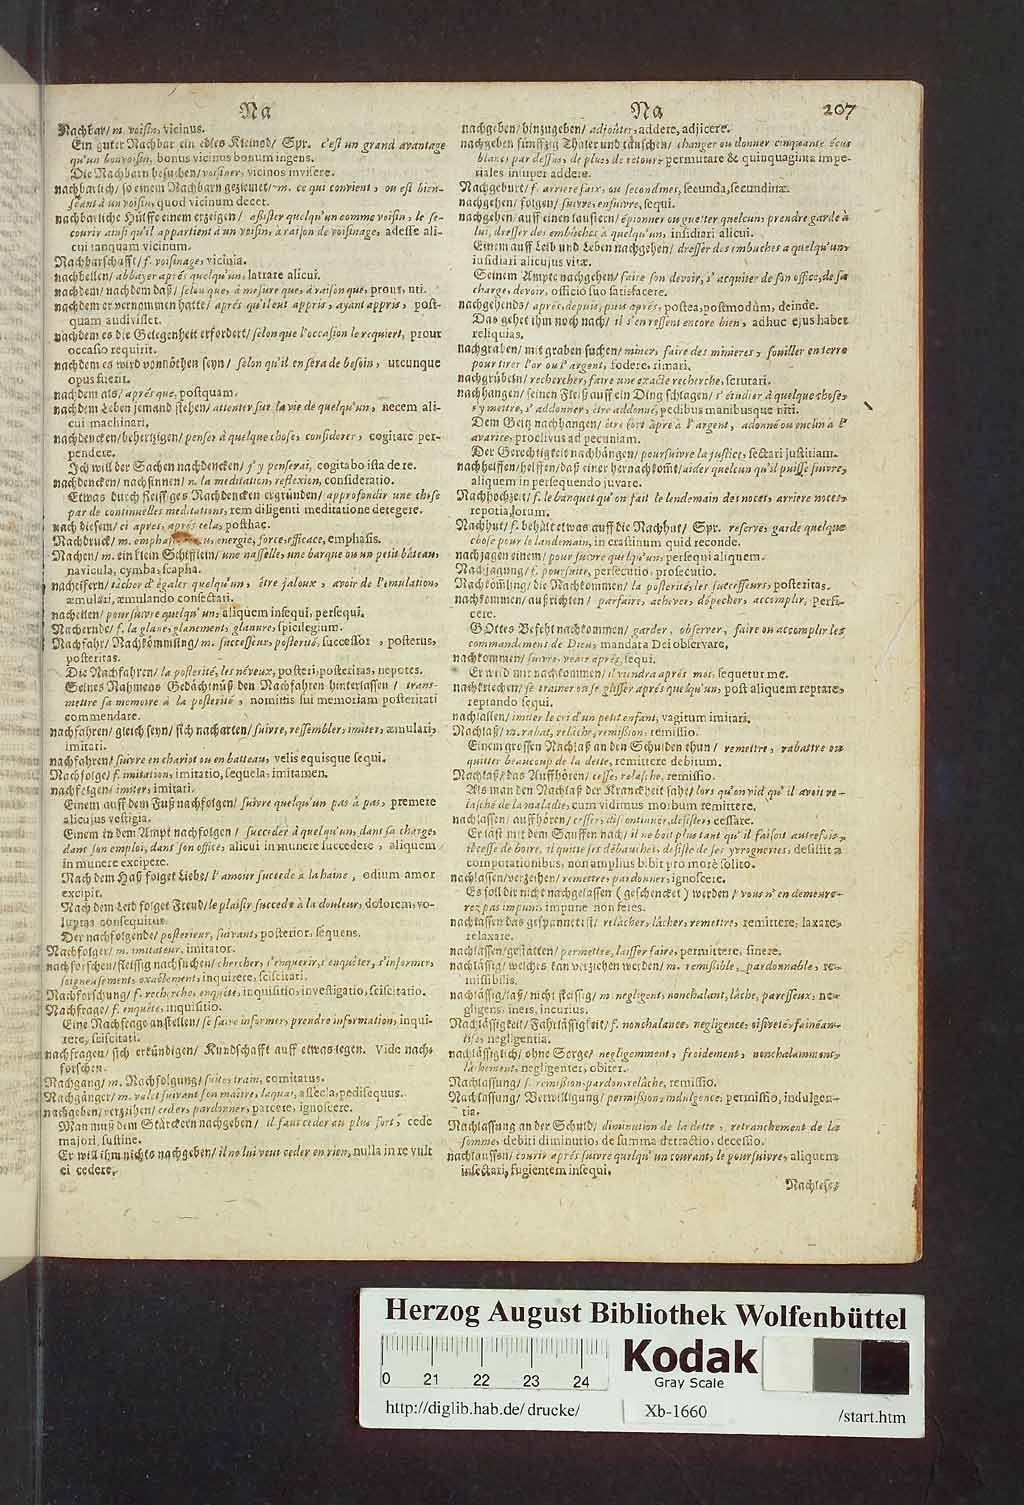 Na
Na 207
Nachbar/ m. voisin, vicinus.
Ein guter Nachbar ein edles Kleinod/ Spr. c'est un grand avantage
qu'un bon voisin, bonus vicinus bonum ingens.
Die Nachbarn besuchen/ voisiner, vicinos invisere.
nachbarlich/ so einem Nachbarn geziemet/ m. ce qui convient, ou est bien-
seant à un voisin, quod vicinum decet.
nachbarliche Hülffe einem erzeigen/ assister quelqu'un comme voisin, le se-
courir ainsi qu'il appartient à un voisin, à raison de voisinage, adesse ali-
cui tanquam vicinum.
Nachbarschafft/ f. voisinage, vicinia.
nachbellen/ abbayer aprés quelqu'un, latrare alicui.
nachdem/ nachdem daß/ selon que, à mesure que, à raison que, prout, uti.
nachdem er vernommen hatte/ aprés qu'il eut appris, ayant appris, post-
quam audivisset.
nachdem es die Gelegenheit erfordert/ selon que l'occasion le requiert, prout
occasio requirit.
nachdem es wird vonnöthen seyn/ selon qu'il en sera de besoin, utcunque
opus fuerit.
nachdem als/ aprés que, postquam.
nachdem Leben jemand stehen/ attenter sur la vie de quelqu'un, necem ali-
cui machinari.
nachdencken/ behertzigen/ penser à quelque chose, considerer, cogitare per-
pendere.
Ich will der Sachen nachdencken/ j'y penserai, cogitabo ista de re.
nachdencken/ nachsinnen/ n. la meditation, reflexion, consideratio.
Etwas durch fleissiges Nachdencken ergründen/ approfondir une chose
par de continuelles meditations, rem diligenti meditatione detegere.
nach diesem/ ci apres, aprés cela, posthac.
Nachdruck/ m. energie, force, efficace, emphasis.
Nachen/ m. ein klein Schifflein/ une nasselle, une barque ou un petit bâteau,
navicula, cymba, scapha.
nacheifern/ tâcher d'égaler quelqu'un, être jaloux, avoir de l'emulation,
æmulari, æmulando consectari.
nacheilen/ poursuivre quelqu'un, aliquem insequi, persequi.
Nachernde/ f. la glane, glanement, glanure, spicilegium.
Nachfahr/ Nachkömmling/ m. successeur, posterité, successor, posterus,
posteritas.
Die Nachfahren/ la posterité, les néveux, posteri, posteritas, nepotes.
Seines Nahmens Gedächtnüß den Nachfahren hinterlassen/ trans-
mettre sa memoire à la posterité, nominis sui memoriam posteritati
commendare.
nachfahren/ gleich seyn/ sich nacharten/ suivre, ressembler, imiter, æmulari,
imitari.
nachfahren/ suivre en chariot ou en batteau, velis equisque sequi.
Nachfolge/ f. imitation, imitatio, sequela, imitamen.
nachfolgen/ imiter, imitari.
Einem auff dem Fuß nachfolgen/ suivre quelqu'un pas à pas, premere
alicujus vestigia.
Einem in dem Ampt nachfolgen/ succeder à quelqu'un, dans sa charge,
dans son emploi, dans son office, alicui in munere succedere, aliquem
in munere excipere.
Nach dem Haß folget Liebe/ l'amour succede à la haine, odium amor
excipit.
Nach dem Leid folget Freud/ le plaisir succede à la douleur, dolorem, vo-
luptas consequitur.
Der nachfolgende/ posterieur, suivant, posterior, sequens.
Nachfolger/ m. imitateur, imitator.
nachforschen/ fleissig nachsuchen/ chercher, s'enquerir, s'enquêter, s'informer,
soigneusement, exactement, inquirere, sciscitari.
Nachforschung/ f. recherche, enquête, inquisitio, investigatio, sciscitatio.
Nachfrage/ f. enquête, inquisitio.
Eine Nachfrage anstellen/ se faire informer, prendre information, inqui-
rere, suiscitari.
nachfragen/ sich erkündigen/ Kundschafft auff etwas legen. Vide nach-
forschen.
Nachgang/ m. Nachfolgung/ suite, train, comitatus.
Nachgänger/ m. valet suivant son maître, laquai, assecla, pedisequus.
nachgeben/ verzeihen/ ceder, pardonner, parcere, ignoscere.
Man muß dem Stärckern nachgeben/ il faut ceder au plus fort, cede
majori, sustine.
Er will ihm nichts nachgeben/ il ne lui veut ceder en rien, nulla in re vult
ei cedere.
nachgeben/ hinzugeben/ adjoûter, addere, adjicere.
nachgeben fünffzig Thaler und täuschen/ changer ou donner cinquante écus
blanc, par dessus, de plus, de retour, permutare & quinquaginta impe-
riales insuper addere.
Nachgeburt/ f. arriere faix, ou secondines, secunda, secundinæ.
nachgehen/ folgen/ suivre, ensuivre, sequi.
nachgehen/ auff einen laustern/ épionner ou guetter quelcun, prendre garde à
lui, dresser des embûches à quelqu'un, insidiari alicui.
Einem auff Leib und Leben nachgehen/ dresser des embuches a quelqu'un,
insidiari alicujus vitæ.
Seinem Ampte nachgehen/ faire son devoir, s'acquiter de son office, de sa
charge, devoir, officio suo satisfacere.
nachgehends/ après, depuis, puis après, postea, postmodùm, deinde.
Das gehet ihm noch nach/ il s'en ressent encore bien, adhuc ejus habet
reliquias.
nachgraben/ mit graben suchen/ miner, faire des minieres, fouiller en terre
pour tirer l'or ou l'argent, fodere, rimari.
nachgrübeln/ rechercher, faire une exacte recherche, scrutari.
nachhangen/ seinen Fleiß auff ein Ding schlagen/ s'étudier à quelque chose,
s'y mettre, s'addonner, être addonné, pedibus manibusque niti.
Dem Geitz nachhangen/ être fort âpre à l'argent, adonné ou enclin à l'
avarice, proclivus ad pecuniam.
Der Gerechtigkeit nachhängen/ poursuivre la justice, sectari justitiam.
nachhelffen/ helffen/ daß einer hernachkom̃t/ aider quelcun qu'il puisse suivre,
aliquem in persequendo juvare.
Nachhochzeit/ f. le banquet qu'on fait le lendemain des noces, arriere noces,
repotia, orum.
Nachhut/ f. behält etwas auff die Nachhut/ Spr. reserve, garde quelque
chose pour le landemain, in crastinum quid reconde.
nachjagen einem/ poursuivre quelqu'un, persequi aliquem.
Nachjagung/ f. poursuite, persecutio, prosecutio.
Nachkom̃ling/ die Nachkommen/ la posterité, les successeurs, posteritas.
nachkommen/ außrichten/ parfaire, achever, dépecher, accomplir, perfi-
cere.
GOttes Befehl nachkommen/ garder, observer, faire ou accomplir les
commandemens de Dieu, mandata Dei observare.
nachkommen/ suivre, venir aprés, sequi.
Er wird mir nachkommen/ il viendra aprés moi, sequetur me.
nachkriechen/ se trainer ou se glisser aprés quelqu'un, post aliquem reptare,
reptando sequi.
nachlallen/ imiter le cri d'un petit enfant, vagitum imitari.
Nachlaß/ m. rabat, relâche, remission, remissio.
Einem grossen Nachlaß an den Schulden thun/ remettre, rabattre ou
quitter beaucoup de la dette, remittere debitum.
Nachlaß/ das Auffhören/ cesse, relasche, remissio.
Als man den Nachlaß der Kranckheit sahe/ lors qu'on vid qu'il avoit re-
lasché de la maladie, cum vidimus morbum remittere.
nachlassen/ auffhören/ cesser, discontinuer, desister, cessare.
Er läst mit dem Sauffen nach/ il ne boit plus tant qu'il faisoit autrefois,
il cesse de boire, il quitte ses débauches, desiste de ses yvrogneries, desistit a
compotationibus, non amplius bibit pro more solito.
nachlassen/ verzeihen/ remettre, pardonner, ignoscere.
Es soll dir nicht nachgelassen (geschencket) werden/ vous n'en demeure-
rez pas impuni, impune non feres.
nachlassen das gespannet ist/ relâcher, lâcher, remettre, remittere, laxare,
relaxare.
nachlassen/ gestatten/ permettre, laisser faire, permittere, sinere.
nachlässig/ welches kan verziehen werden/ m. remissible, pardonnable, re-
missibilis.
nachlässig/ laß/ nicht fleissig/ m. negligent, nonchalant, lâche, paresseux, ne-
gligens, iners, incurius.
Nachlässigkeit/ Fahrlässigkeit/ f. nonchalance, negligence, oisiveté, fainéan-
tise, negligentia.
nachlässiglich/ ohne Sorge/ negligemment, froidement, nonchalamment,
lâchement, negligenter, obiter.
Nachlassung/ f. remission, pardon, relâche, remissio.
Nachlassung/ Verwilligung/ permission, indulgence, permissio, indulgen-
tia.
Nachlassung an der Schuld/ diminution de la dette, retranchement de la
somme, debiti diminutio, de summa detractio, decessio.
nachlauffen/ courir aprés suivre quelqu'un courant, le poursuivre, aliquem
insectari, fugientem insequi.
Nachless
Herzog August Bibliothek Wolfenbüttel
0 21 22 23 24
Kodak
Gray Scale
http://diglib.hab.de/drucke/ Xb-1660 /start.htm